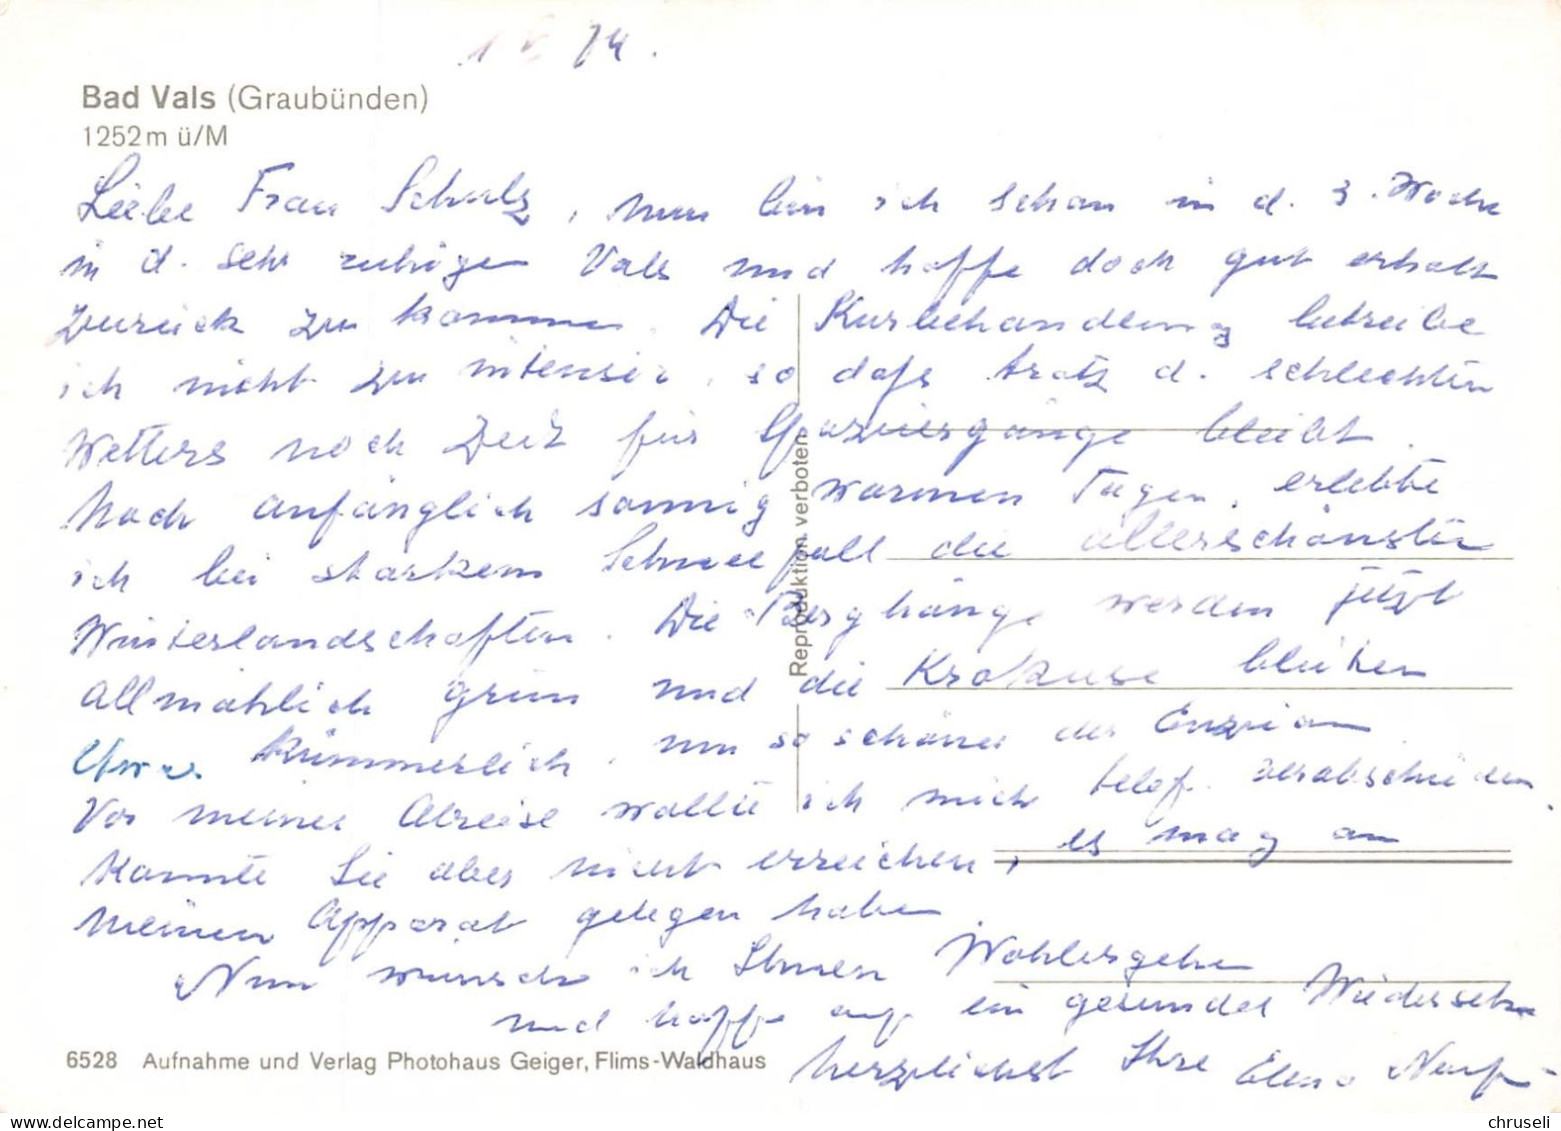 74.
Bad Vals (Graubünden)
1252 m ü/M
Liebe Frau Schulz, nun bin ich schon in d. 3. Woche
in d. sehr ruhigen Vals und hoffe doch gut erholt
zurück zu kommen. Die Kurbehandlung betreibe
ich nicht zu intensiv, so daß trotz d. schlechten
Wetters noch Zeit für Spaziergänge bleibt.
Nach anfänglich sonnig warmen Tagen, erlebte
ich bei starkem Schneefall die allerschönsten
Winterlandschaften. Die Berghänge werden jetzt
allmählich grün und die Krokuse blühen
etwas kümmerlich, um so schöner der Enzian.
Vor meiner Abreise wollte ich mich telef. verabschieden.
Konnte Sie aber nicht erreichen, es mag an
meinen Apparat gelegen haben.
Nun wünsche ich Ihnen Wohlergehen
und hoffe auf ein gesundes Wiedersehn
herzlichst Ihre Elena
Reproduktion verboten
6528 Aufnahme und Verlag Photohaus Geiger, Flims-Waldhaus
chruseli